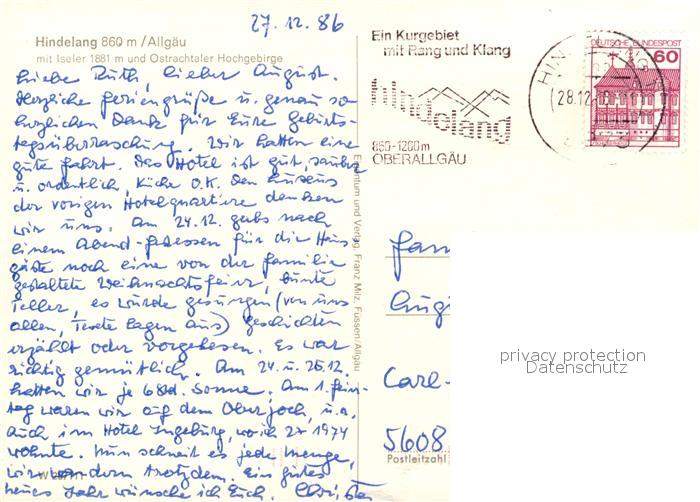 27.12.86
Hindelang 860 m/Allgäu
mit Iseler 1881 m und Ostrachtaler Hochgebirge
Liebe Ruth, lieber August.
Herzliche Feriengrüße u. genau so
herzlichen Dank für Eure Geburts-
tagsüberraschung. Wir hatten eine
gute Fahrt. Das Hotel ist gut, sauber
u. ordentlich, Küche O.K. Den Luxus
der vorigen Hotelquartiere denken
wir uns. Am 24.12. gabs nach
einem Abend-Festessen für die Haus-
gäste noch eine von der Familie
gestaltete Weihnachtsfeier, bunte
Teller, es wurde gesungen (von uns
allen, Texte lagen aus) Geschichten
erzählt oder vorgelesen. Es war
richtig gemütlich. Am 24 u. 25.12.
hatten wir je 6 Std. Sonne. Am 1. Feier-
tag waren wir auf dem Oberjoch, u.a.
auch im Hotel Ingeburg, wo ich 27 1974
wohnte. Nun schneit es jede Menge,
wir trotzdem. Ein gutes
neues Jahr wünsche ich Euch.
Eigentum und Verlag, Franz Milz, Fussen/Allgäu
Ein Kurgebiet
mit Rang und Klang
hindelang
850-1200m
OBERALLGÄU
28.12.
DEUTSCHE BUNDESPOST
60
Fam
Aug
Carl-
5608
Postleitzahl
privacy protection
Datenschutz